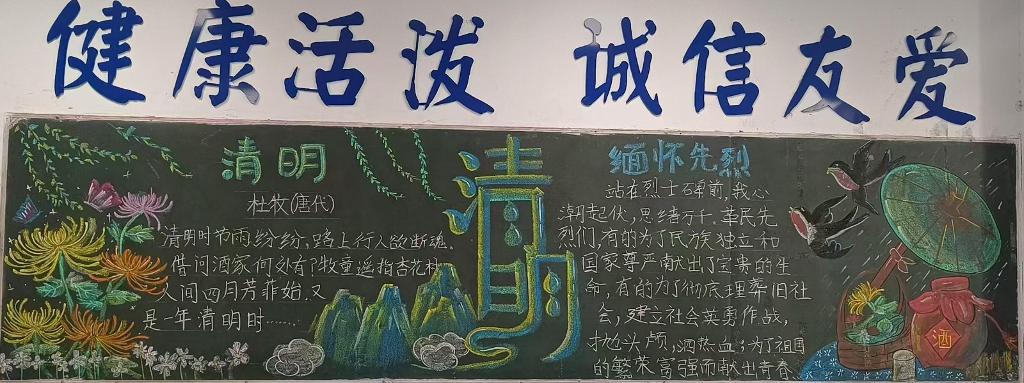 健康活泼 诚信友爱
清明
杜牧(唐代)
清明时节雨纷纷,路上行人欲断魂.
借问酒家何处有?牧童遥指杏花村
人间四月芳菲始.又
是一年清明时……
清明
缅怀先烈
站在烈士碑前,我心
潮起伏,思绪万千,革民先
烈们,有的为了民族独立和
国家尊严献出了宝贵的生
命,有的为了彻底埋葬旧社
会,建立社会英勇作战,
抛头颅,洒热血;为了祖国
的繁荣富强而献出青春
酒